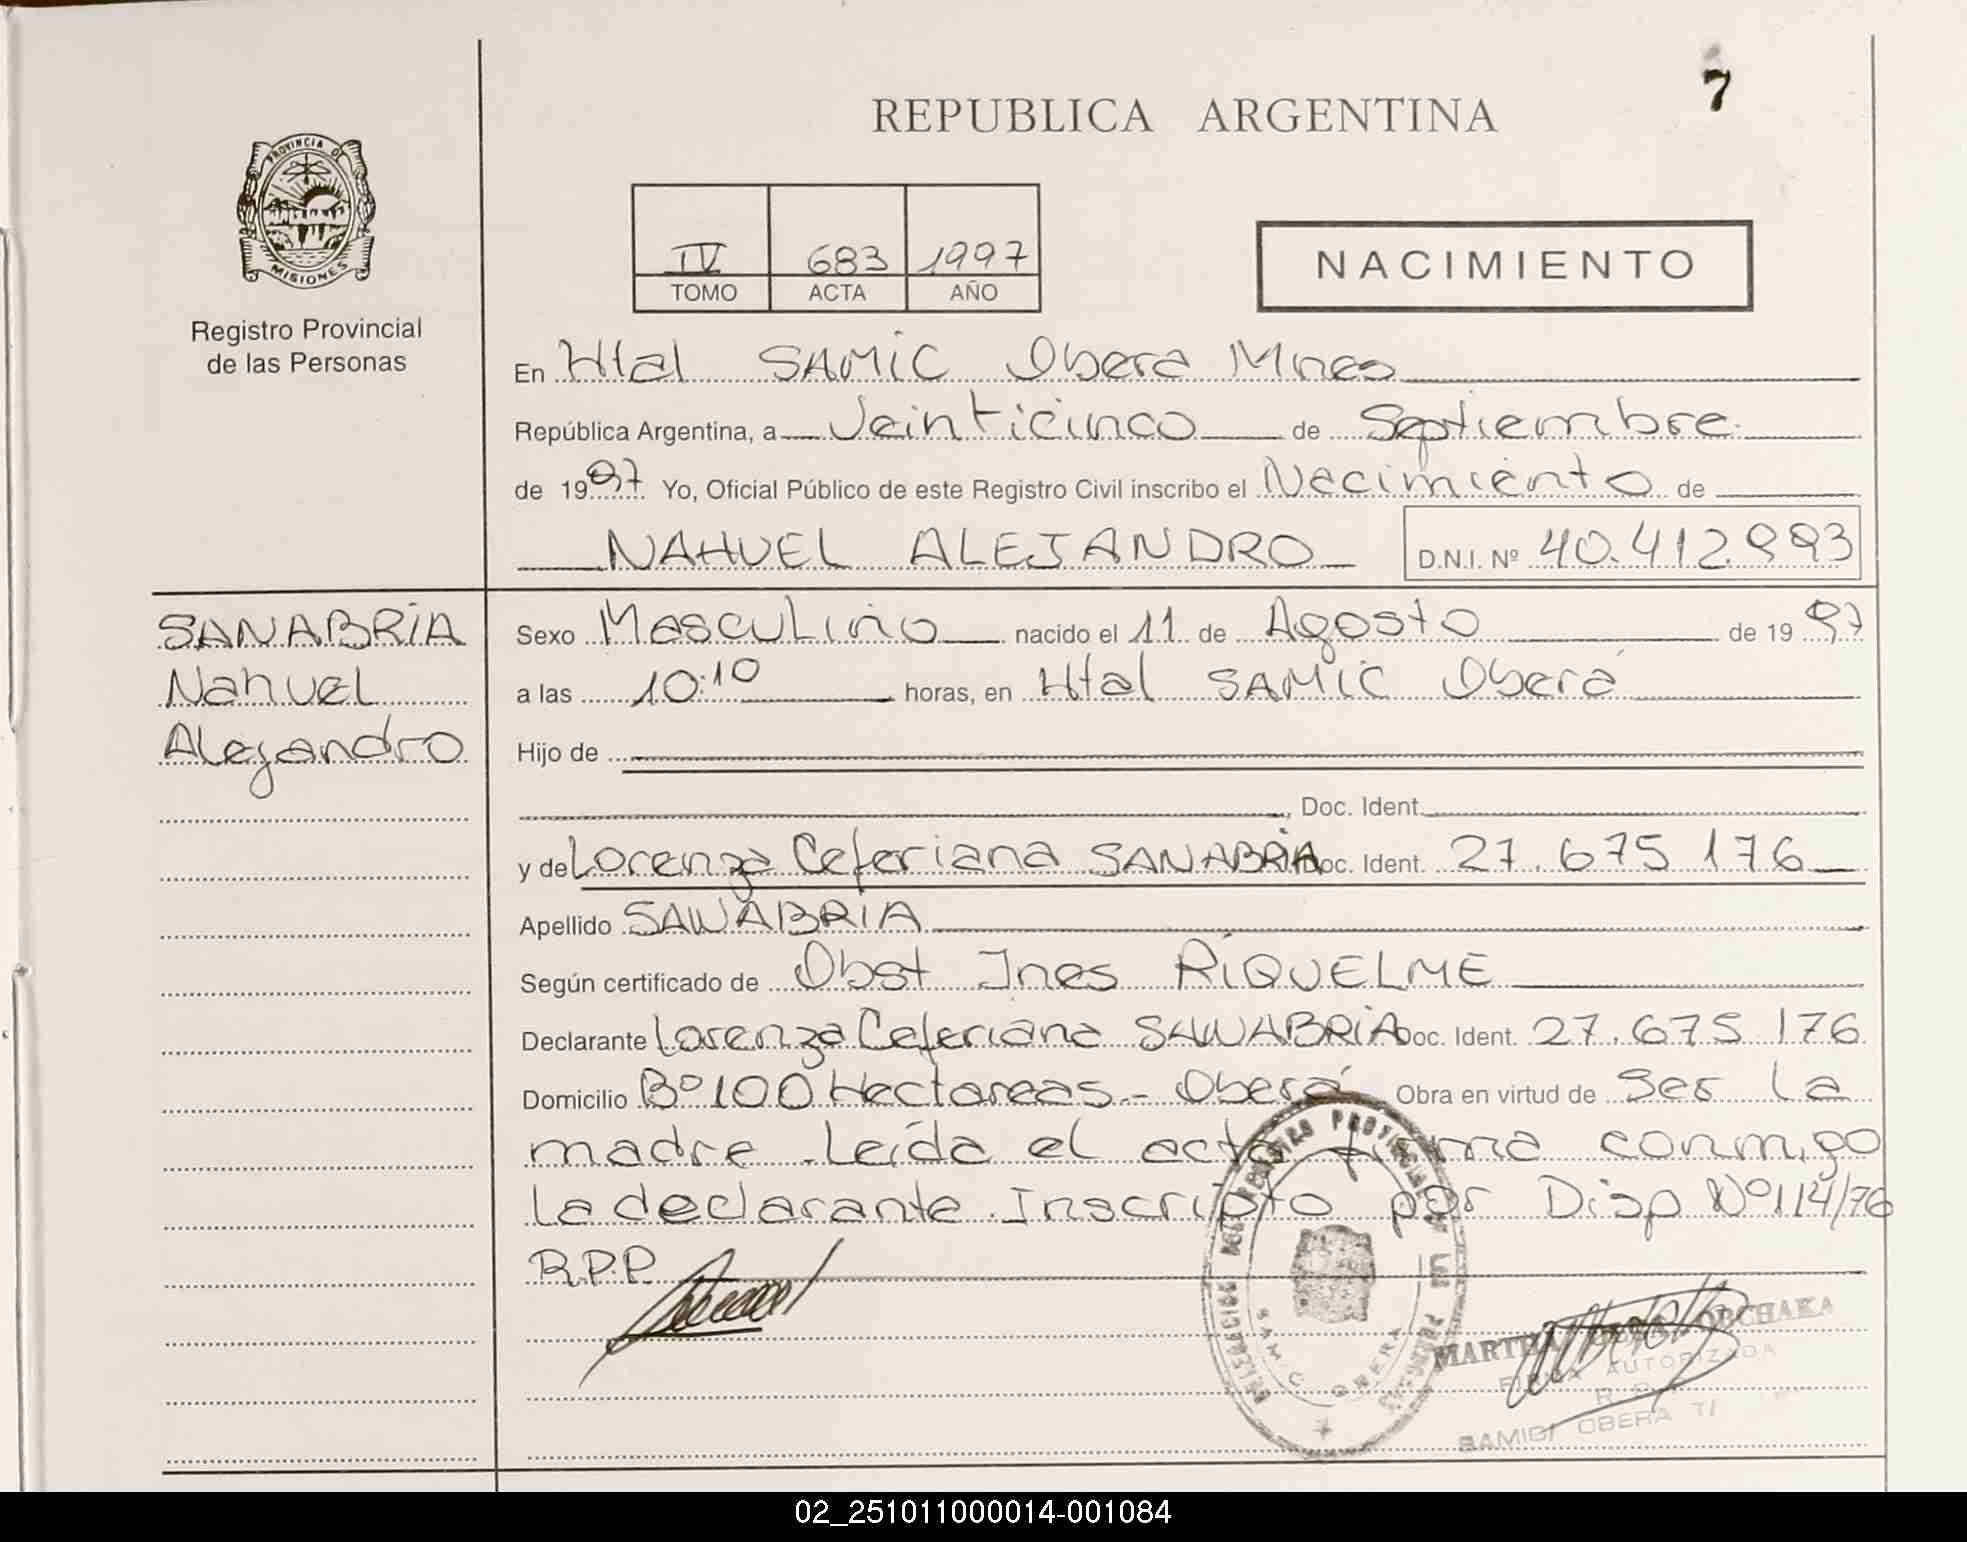 7
REPUBLICA ARGENTINA
PROVINCIA DE
MISIONES
Registro Provincial
de las Personas
IV 683 1997
TOMO ACTA AÑO
NACIMIENTO
En Htal SAMIC Oberá Mnes
República Argentina, a Veinticinco de Septiembre
de 1997 Yo, Oficial Público de este Registro Civil inscribo el Nacimiento de
NAHUEL ALEJANDRO D.N.I. Nº 40.412.993
SANABRIA
Nahuel
Alejandro
Sexo Masculino nacido el 11 de Agosto de 1997
a las 10:10 horas, en Htal SAMIC Oberá
Hijo de
, Doc. Ident.
y de Lorenza Ceferiana SANABRIA Doc. Ident. 27.675.176
Apellido SANABRIA
Según certificado de Obst Ines RIQUELME
Declarante Lorenza Ceferiana SANABRIA Doc. Ident. 27.675.176
Domicilio Bº 100 Hectareas - Oberá Obra en virtud de Ser la
madre. Leída el acta firma conmigo
la declarante. Inscripto por Disp Nº 114/76
R.P.P.
MARTHA
FIRMA AUTORIZADA
SAMIC OBERA
02_251011000014-001084